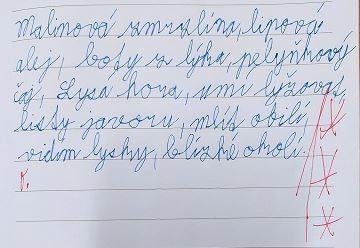 Malinová zmrzlina, lipová
alej, boty z lýka, pelyňkový
čaj, Lysá hora, umí lyžovat,
listy javoru, mlít obilí,
vidím lysky, blízké okolí.